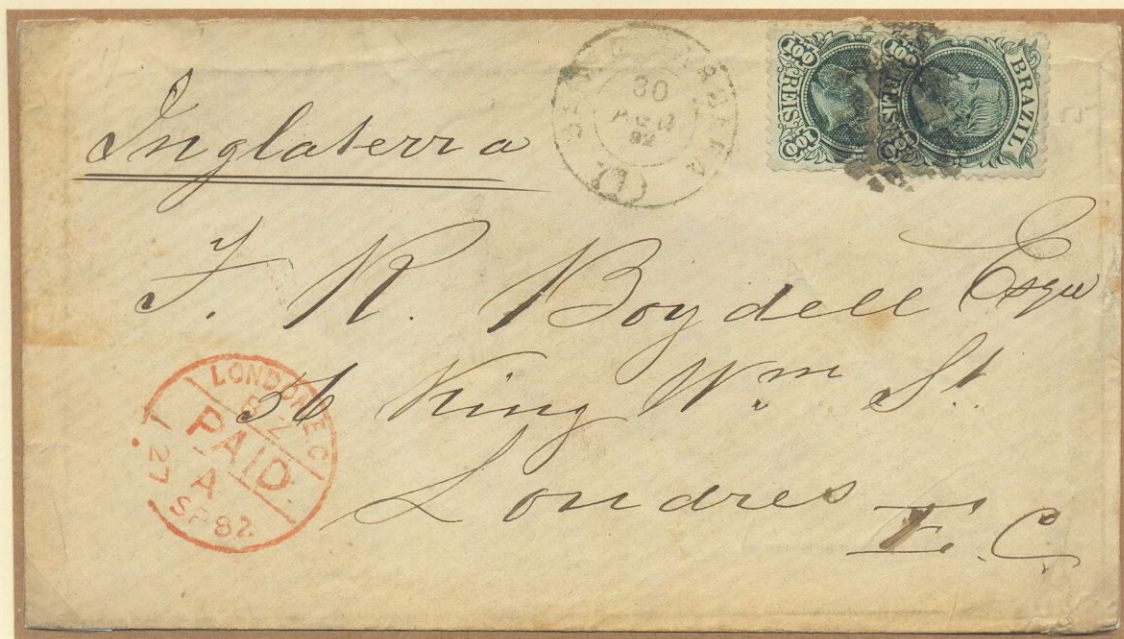 Inglaterra
30
82
100 REIS 100
BRAZIL
100 REIS 100
F. R. Boydell Esqre
36 King Wm St.
Londres
E. C.
LONDON E.C
PAID
A
27 SP 82